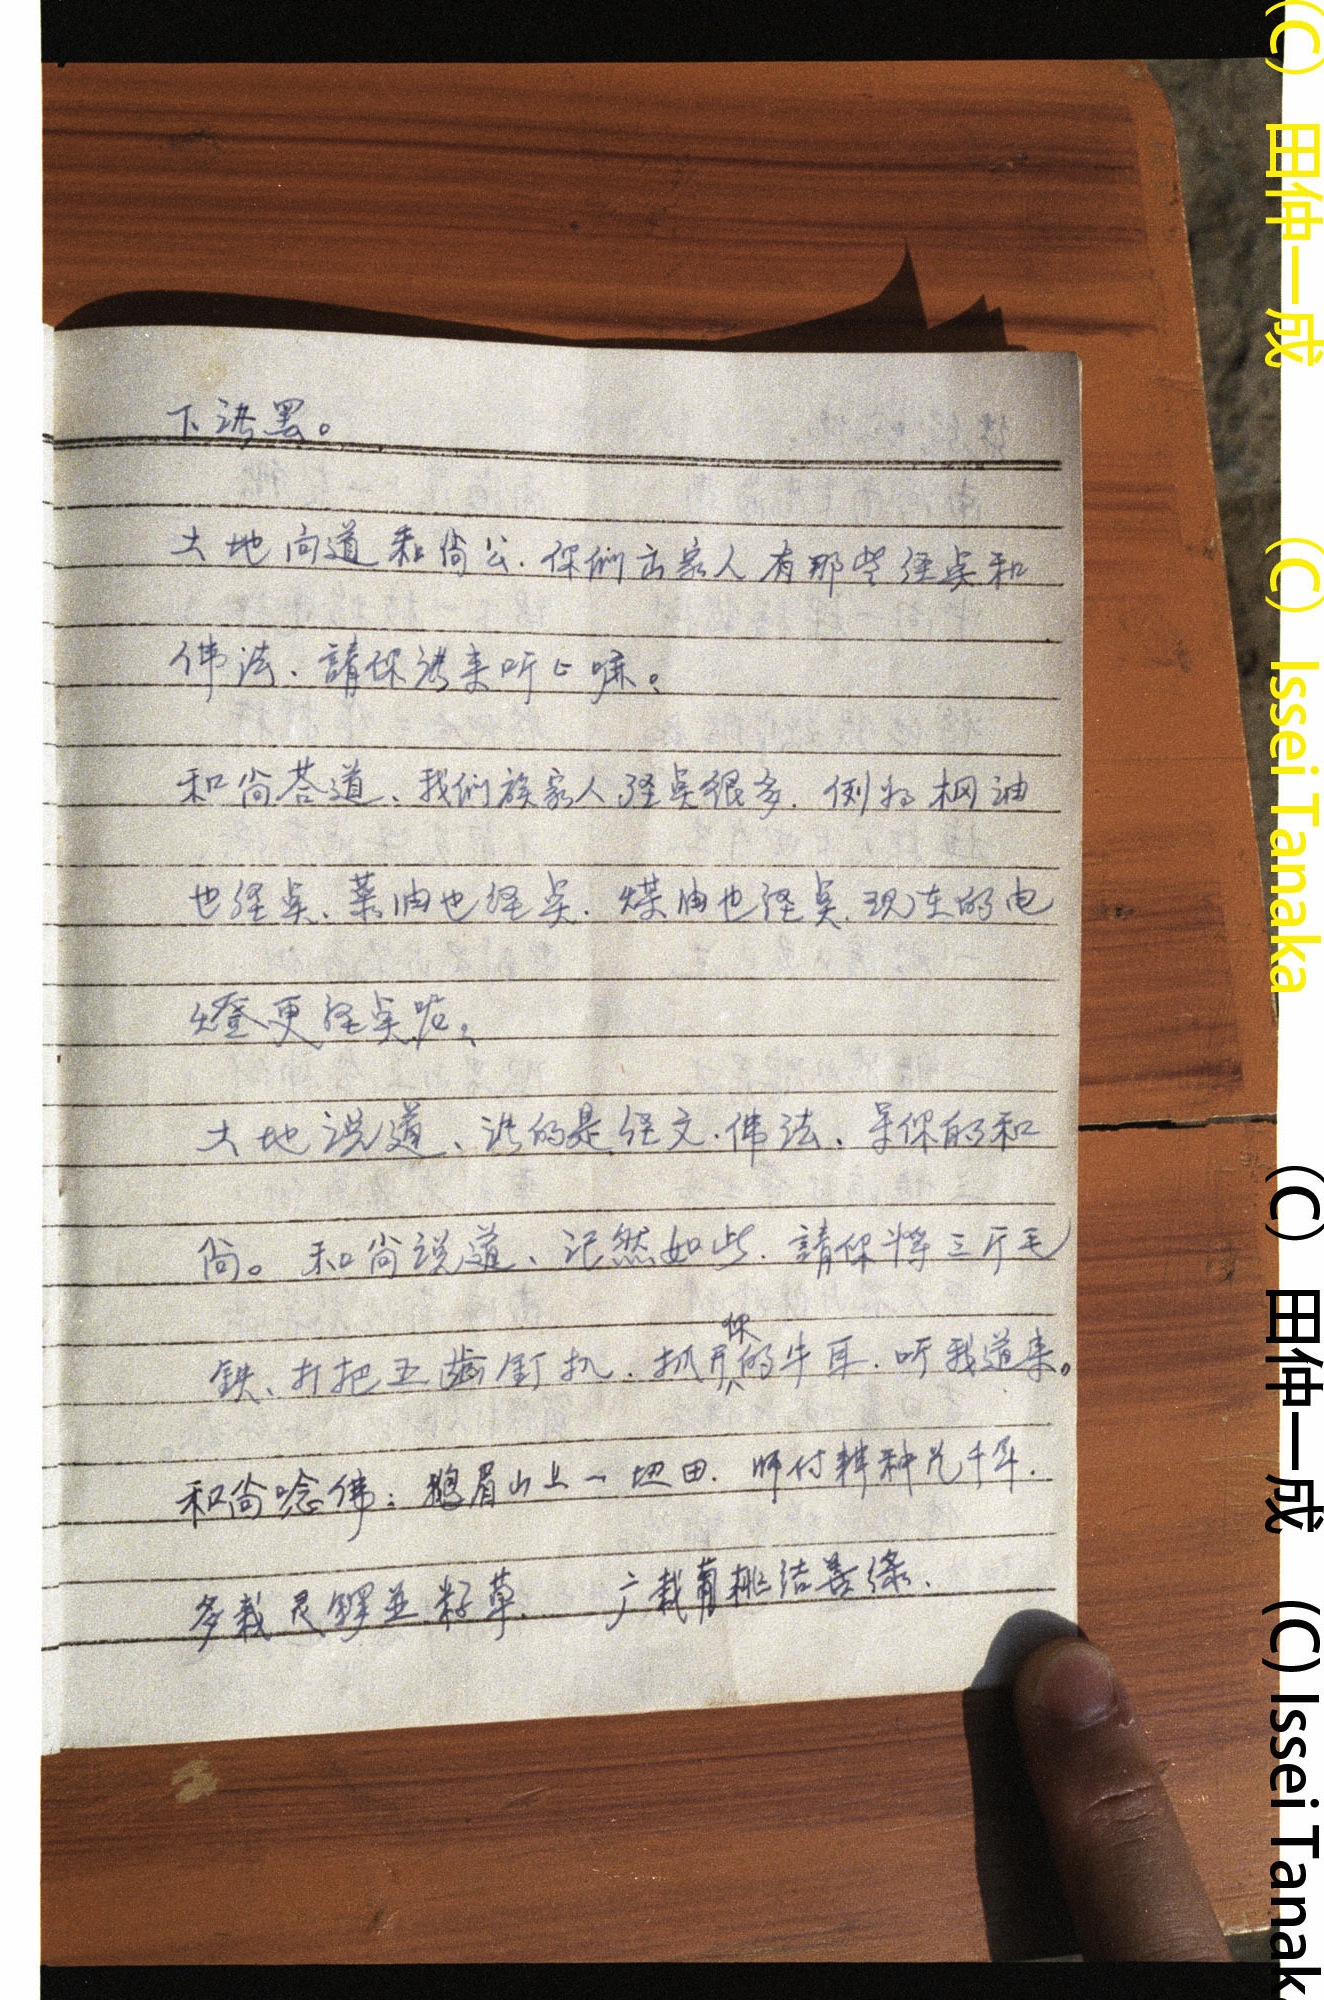 下讲罢。
土地问道和尚公、你们出家人有那些经点和
佛法、請你讲来听上嘛。
和尚荅道、我们族家人经点很多、例如枫油
也经点、菜油也经点、煤油也经点、现在的电
燈更经点呢。
土地说道、讲的是经文、佛法、呆你的和
尚。和尚说道、记然如此、請你将三斤毛
鉄、打把五齿钉扒、抓开你的牛耳、听我道来。
和尚唸佛:鹅眉山上一坵田、师付耕种几千年、
多栽灵 並 籽草、 广栽 桃结善缘、
(C) 田仲一成 (C) Issei Tanaka (C) 田仲一成 (C) Issei Tanak